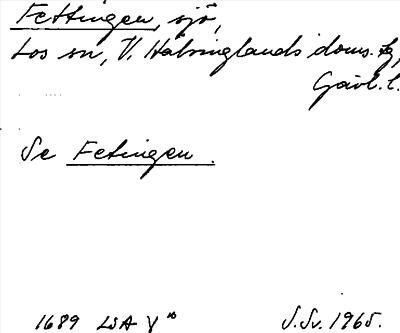 Fettingen, sjö,
Los sn, V. Hälsinglands doms. tg,
Gävl. l.
Se Fetingen.
1689 LSA
S. Sv. 1965.